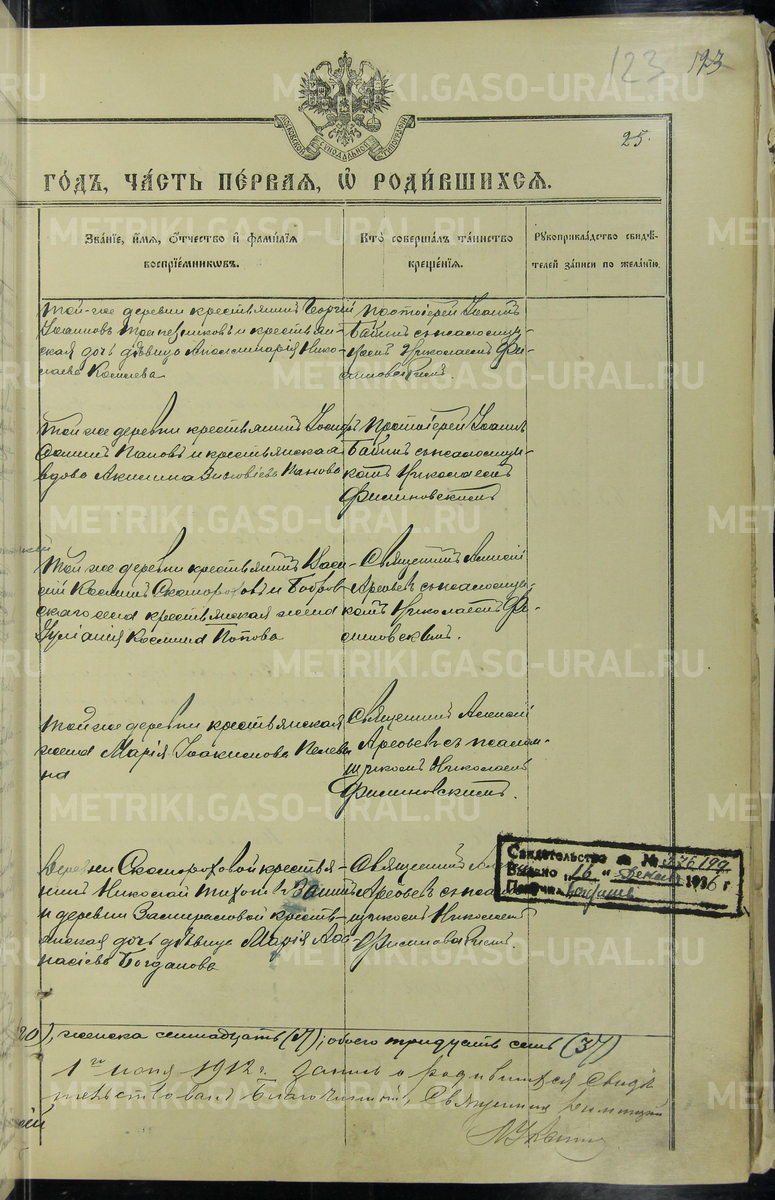 123 123
25.
годъ, часть первая, ѡ родившихся.
Званіе, имя, отчество и фамилія
воспріемниковъ.
Кто совершалъ таинство
крещенія.
Рукоприкладство свидѣ-
телей записи по желанію.
Той-же деревни крестьянинъ Георгій
Іоанновъ и крестьян-
ская дочь дѣвица Аполлинарія Нико-
лаева
Протоіерей Іоаннъ
съ псаломщи-
комъ Николаемъ Фи-
линовскимъ.
Той же деревни крестьянинъ
Поповъ и крестьянская
вдова Акилина Зиновіева Панова
Протоіерей Іоаннъ
съ псаломщи-
комъ Николаемъ
Филиновскимъ
Той же деревни крестьянинъ Васи-
лій Косминъ Скомороховъ и Бобров-
скаго села крестьянская жена
Іуліанія Космина Попова
Священникъ Алексій
Арефьевъ съ псаломщи-
комъ Николаемъ Фи-
линовскимъ.
Той же деревни крестьянская
жена Марія Іоакимова Пелеви-
на
Священникъ Алексій
Арефьевъ съ псалом-
щикомъ Николаемъ
Филиновскимъ.
Деревни Скомороховой крестья-
нинъ Николай Тихоновъ
и деревни крестья-
янская дочь дѣвица Марія Аѳа-
насіева Богданова
Священникъ
Арефьевъ съ псалом-
щикомъ Николаемъ
Филиновскимъ.
Свидетельство за № 376199
Выдано „16" декабр 1936 г
20), женска семнадцать (17); обоего тридцать семь (37)
1го іюня 1912 г. запись о родившихся свидѣ
тельствовалъ Благочинный, Священникъ Димитрій
METRIKI.GASO-URAL.RU